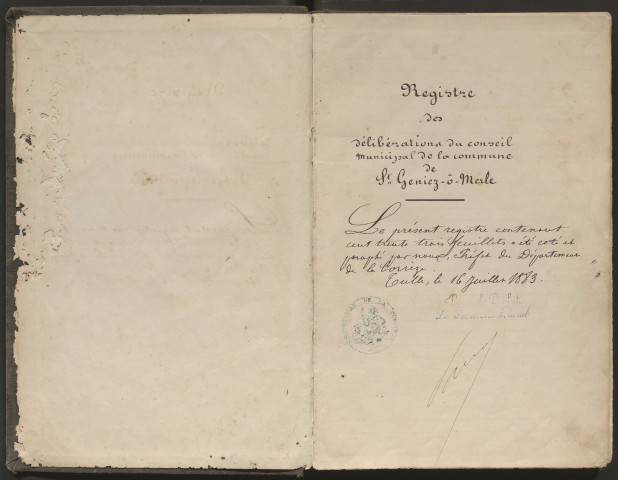 Registre
des
délibérations du conseil
municipal de la commune
de
St Geniez-ô-Merle
Le présent registre contenant
cent trente trois feuillets a été coté et
paraphé par nous, Préfet du Département
de la Corrèze.
Tulle, le 16 Juillet 1883.
Le Secrétaire Général